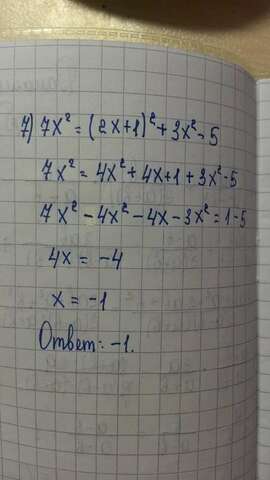 7) 7x² = (2x+1)² + 3x² - 5
7x² = 4x² + 4x + 1 + 3x² - 5
7x² - 4x² - 4x - 3x² = 1 - 5
4x = -4
x = -1
Ответ: -1.